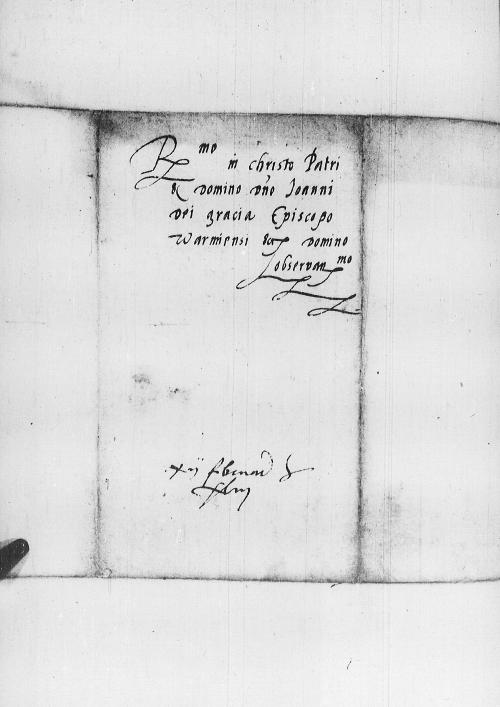 R mo
in christo Patri
& Domino Dno Ioanni
Dei gracia Episcopo
Warmiensi &c Domino
observan mo
xij februarij